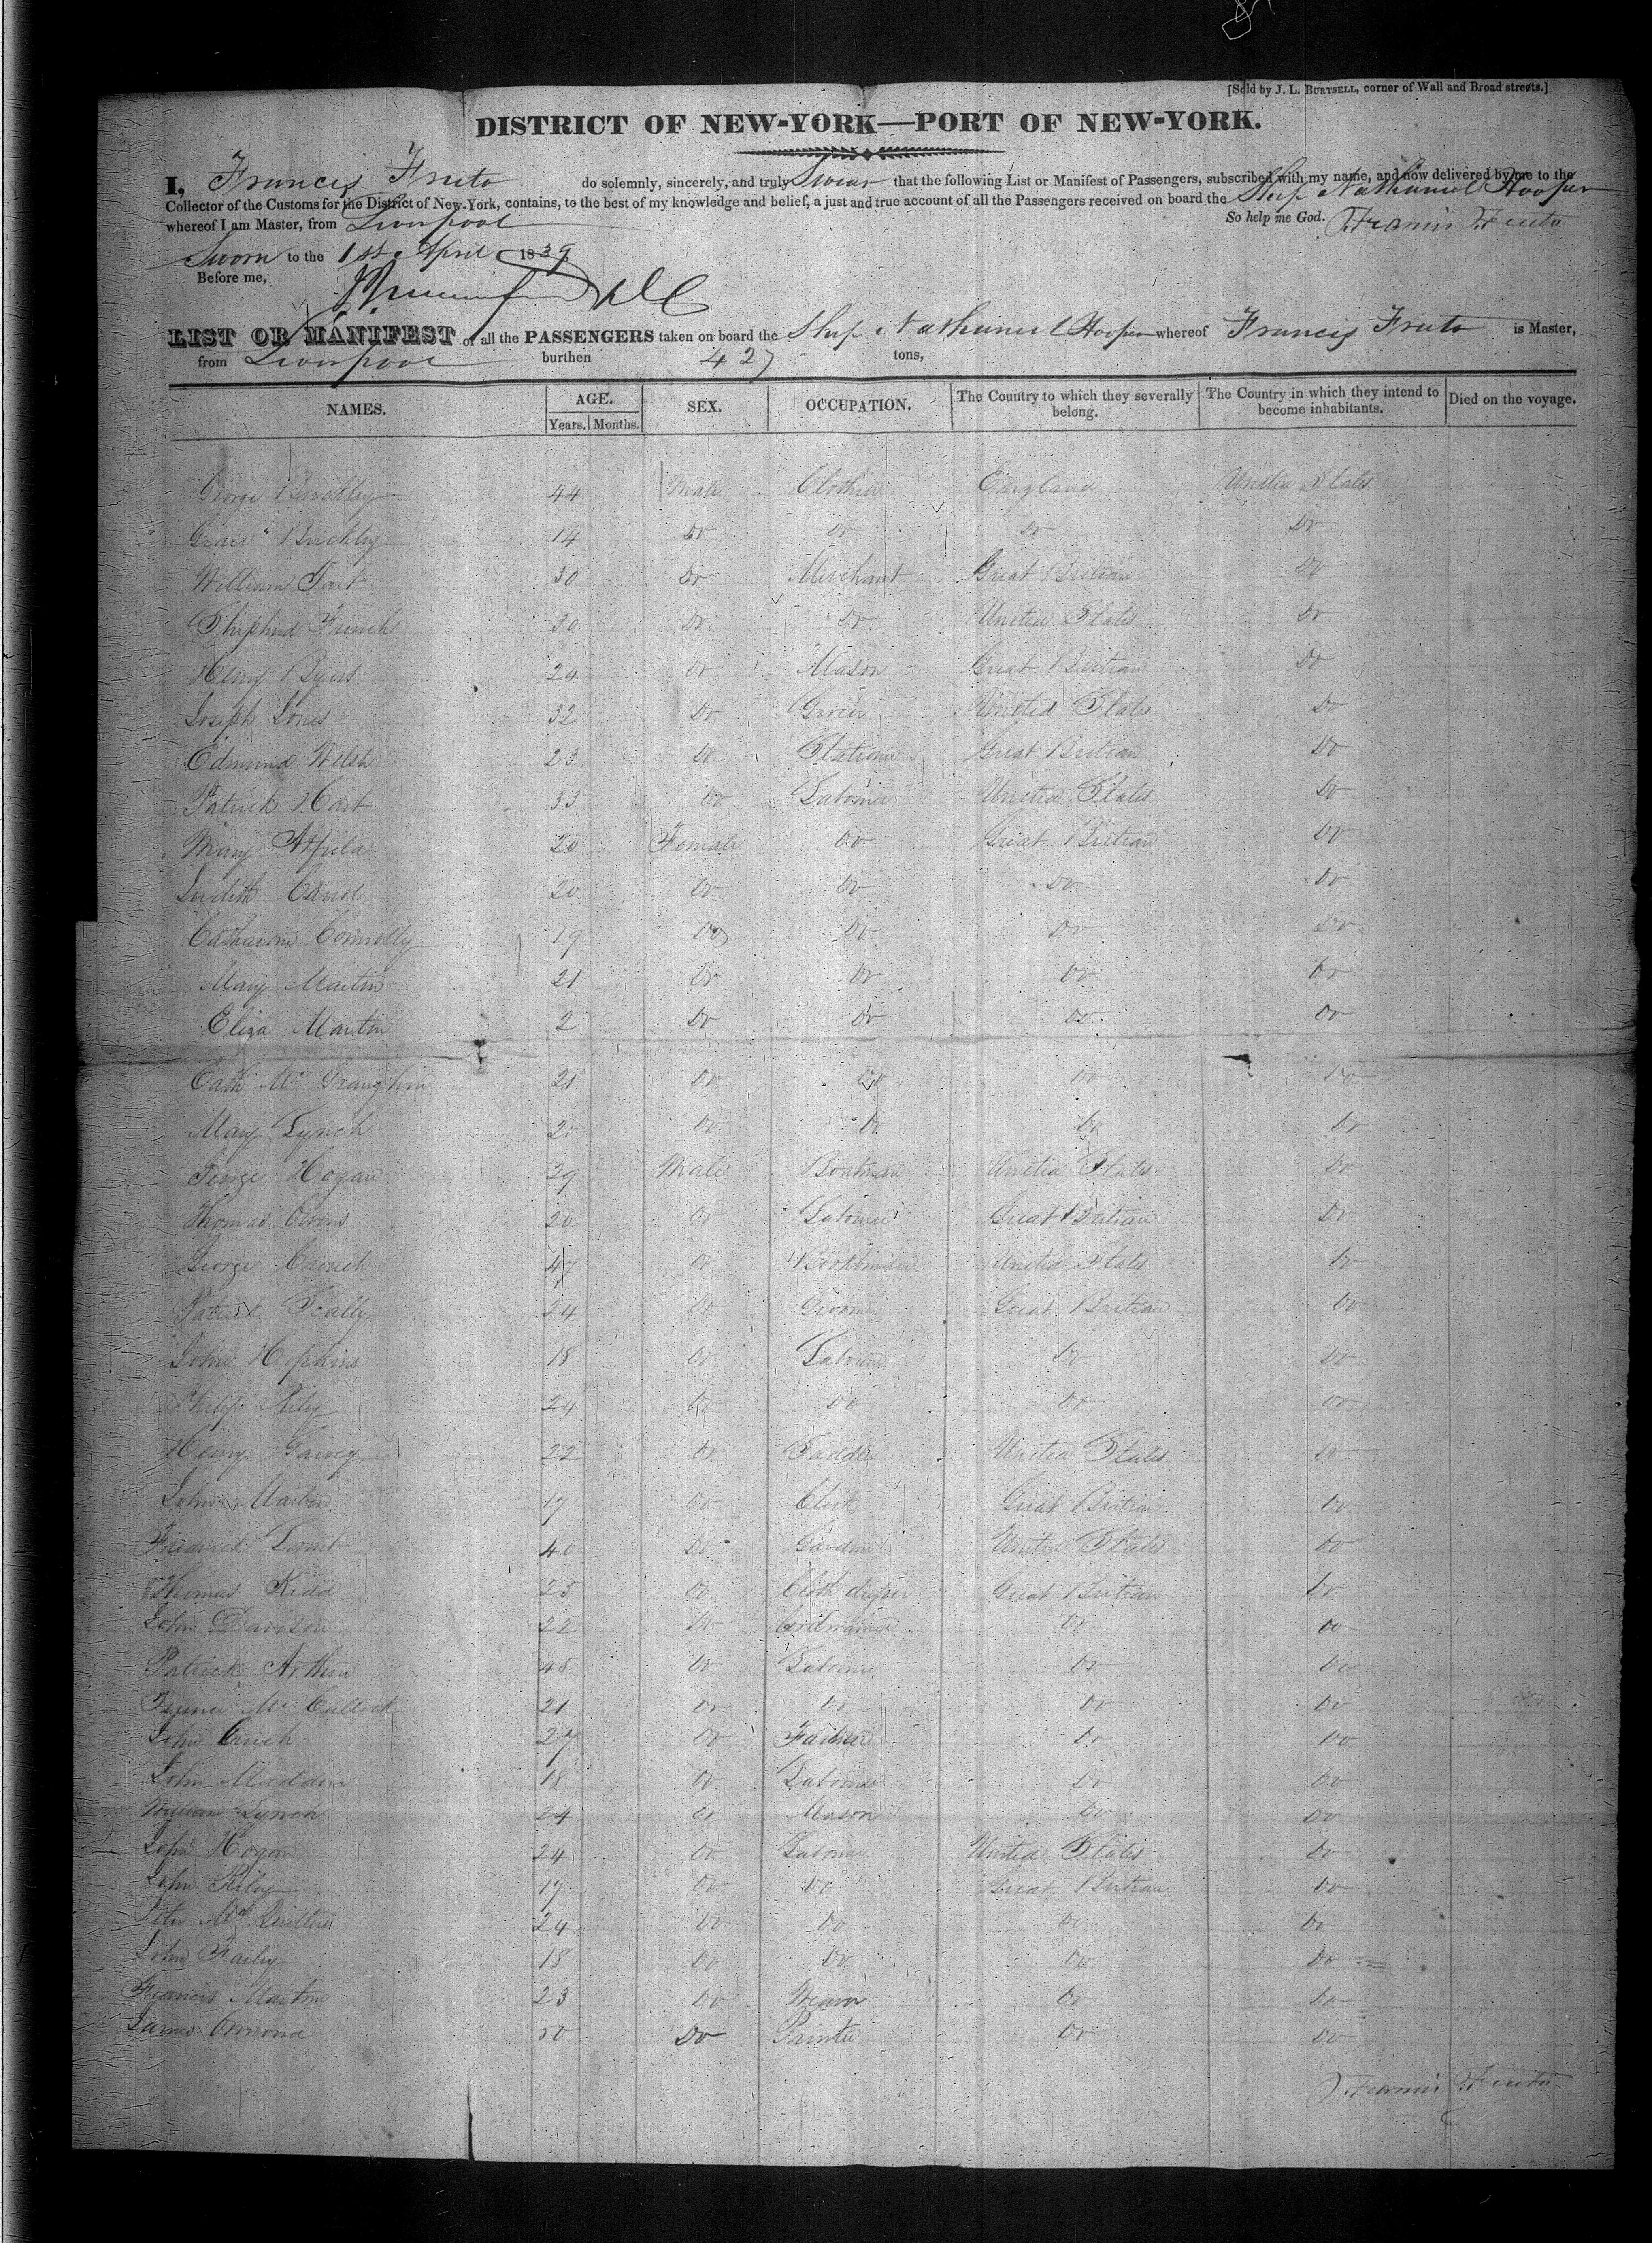 [Sold by J. L. BURTSELL, corner of Wall and Broad streets.]
DISTRICT OF NEW-YORK—PORT OF NEW-YORK.
I, Francis Fruto do solemnly, sincerely, and truly Swear that the following List or Manifest of Passengers, subscribed with my name, and now delivered by me to the
Collector of the Customs for the District of New-York, contains, to the best of my knowledge and belief, a just and true account of all the Passengers received on board the Ship Nathaniel Hooper
whereof I am Master, from Liverpool So help me God. Francis Fruto
Sworn to the 1st April 1839
Before me,
LIST OR MANIFEST of all the PASSENGERS taken on board the Ship Nathaniel Hooper whereof Francis Fruto is Master,
from Liverpool burthen 427 tons,
NAMES. AGE. Years. Months. SEX. OCCUPATION. The Country to which they severally belong. The Country in which they intend to become inhabitants. Died on the voyage.
George Buckley 44 Male Clothier England United States
Buckley 14 Do Do Do Do
William Tait 30 Do Merchant Great Britian Do
French 30 Do Do United States Do
Henry Byers 24 Do Mason Great Britian Do
Joseph Jones 32 Do Grocer United States Do
Edmund Welsh 23 Do Stationer Great Britian Do
Patrick Hart 33 Do Labourer United States Do
Mary 20 Female Do Great Britian Do
Judith Carrol 20 Do Do Do Do
Catharine Connolly 19 Do Do Do Do
Mary Martin 21 Do Do Do Do
Eliza Martin 2 Do Do Do Do
Cath 21 Do Do Do Do
Mary Lynch 20 Do Do Do Do
George Hogan 29 Male Boatman United States Do
Thomas Owens 20 Do Labourer Great Britian Do
George Crouch 47 Do Bookbinder United States Do
Patrick Scally 24 Do Groom Great Britian Do
John Hopkins 18 Do Labourer Do Do
Philip Riley 24 Do Do Do Do
Henry Garvey 22 Do Saddler United States Do
John Martin 17 Do Clerk Great Britian Do
Fredrick Lamb 40 Do Gardner United States Do
Thomas Kidd 25 Do Cloth Great Britian Do
John Davison 22 Do Cordwainer Do Do
Patrick Arthur 45 Do Labourer Do Do
Mc Cullock 21 Do Do Do Do
John 27 Do Farmer Do Do
John Madden 18 Do Labourer Do Do
William Lynch 24 Do Mason Do Do
John Hogan 24 Do Labourer United States Do
John Riley 17 Do Do Great Britian Do
Peter Mc 24 Do Do Do Do
John Farley 18 Do Do Do Do
Francis Martin 23 Do Weaver Do Do
James Ormond 50 Do Painter Do Do
Francis Fruto